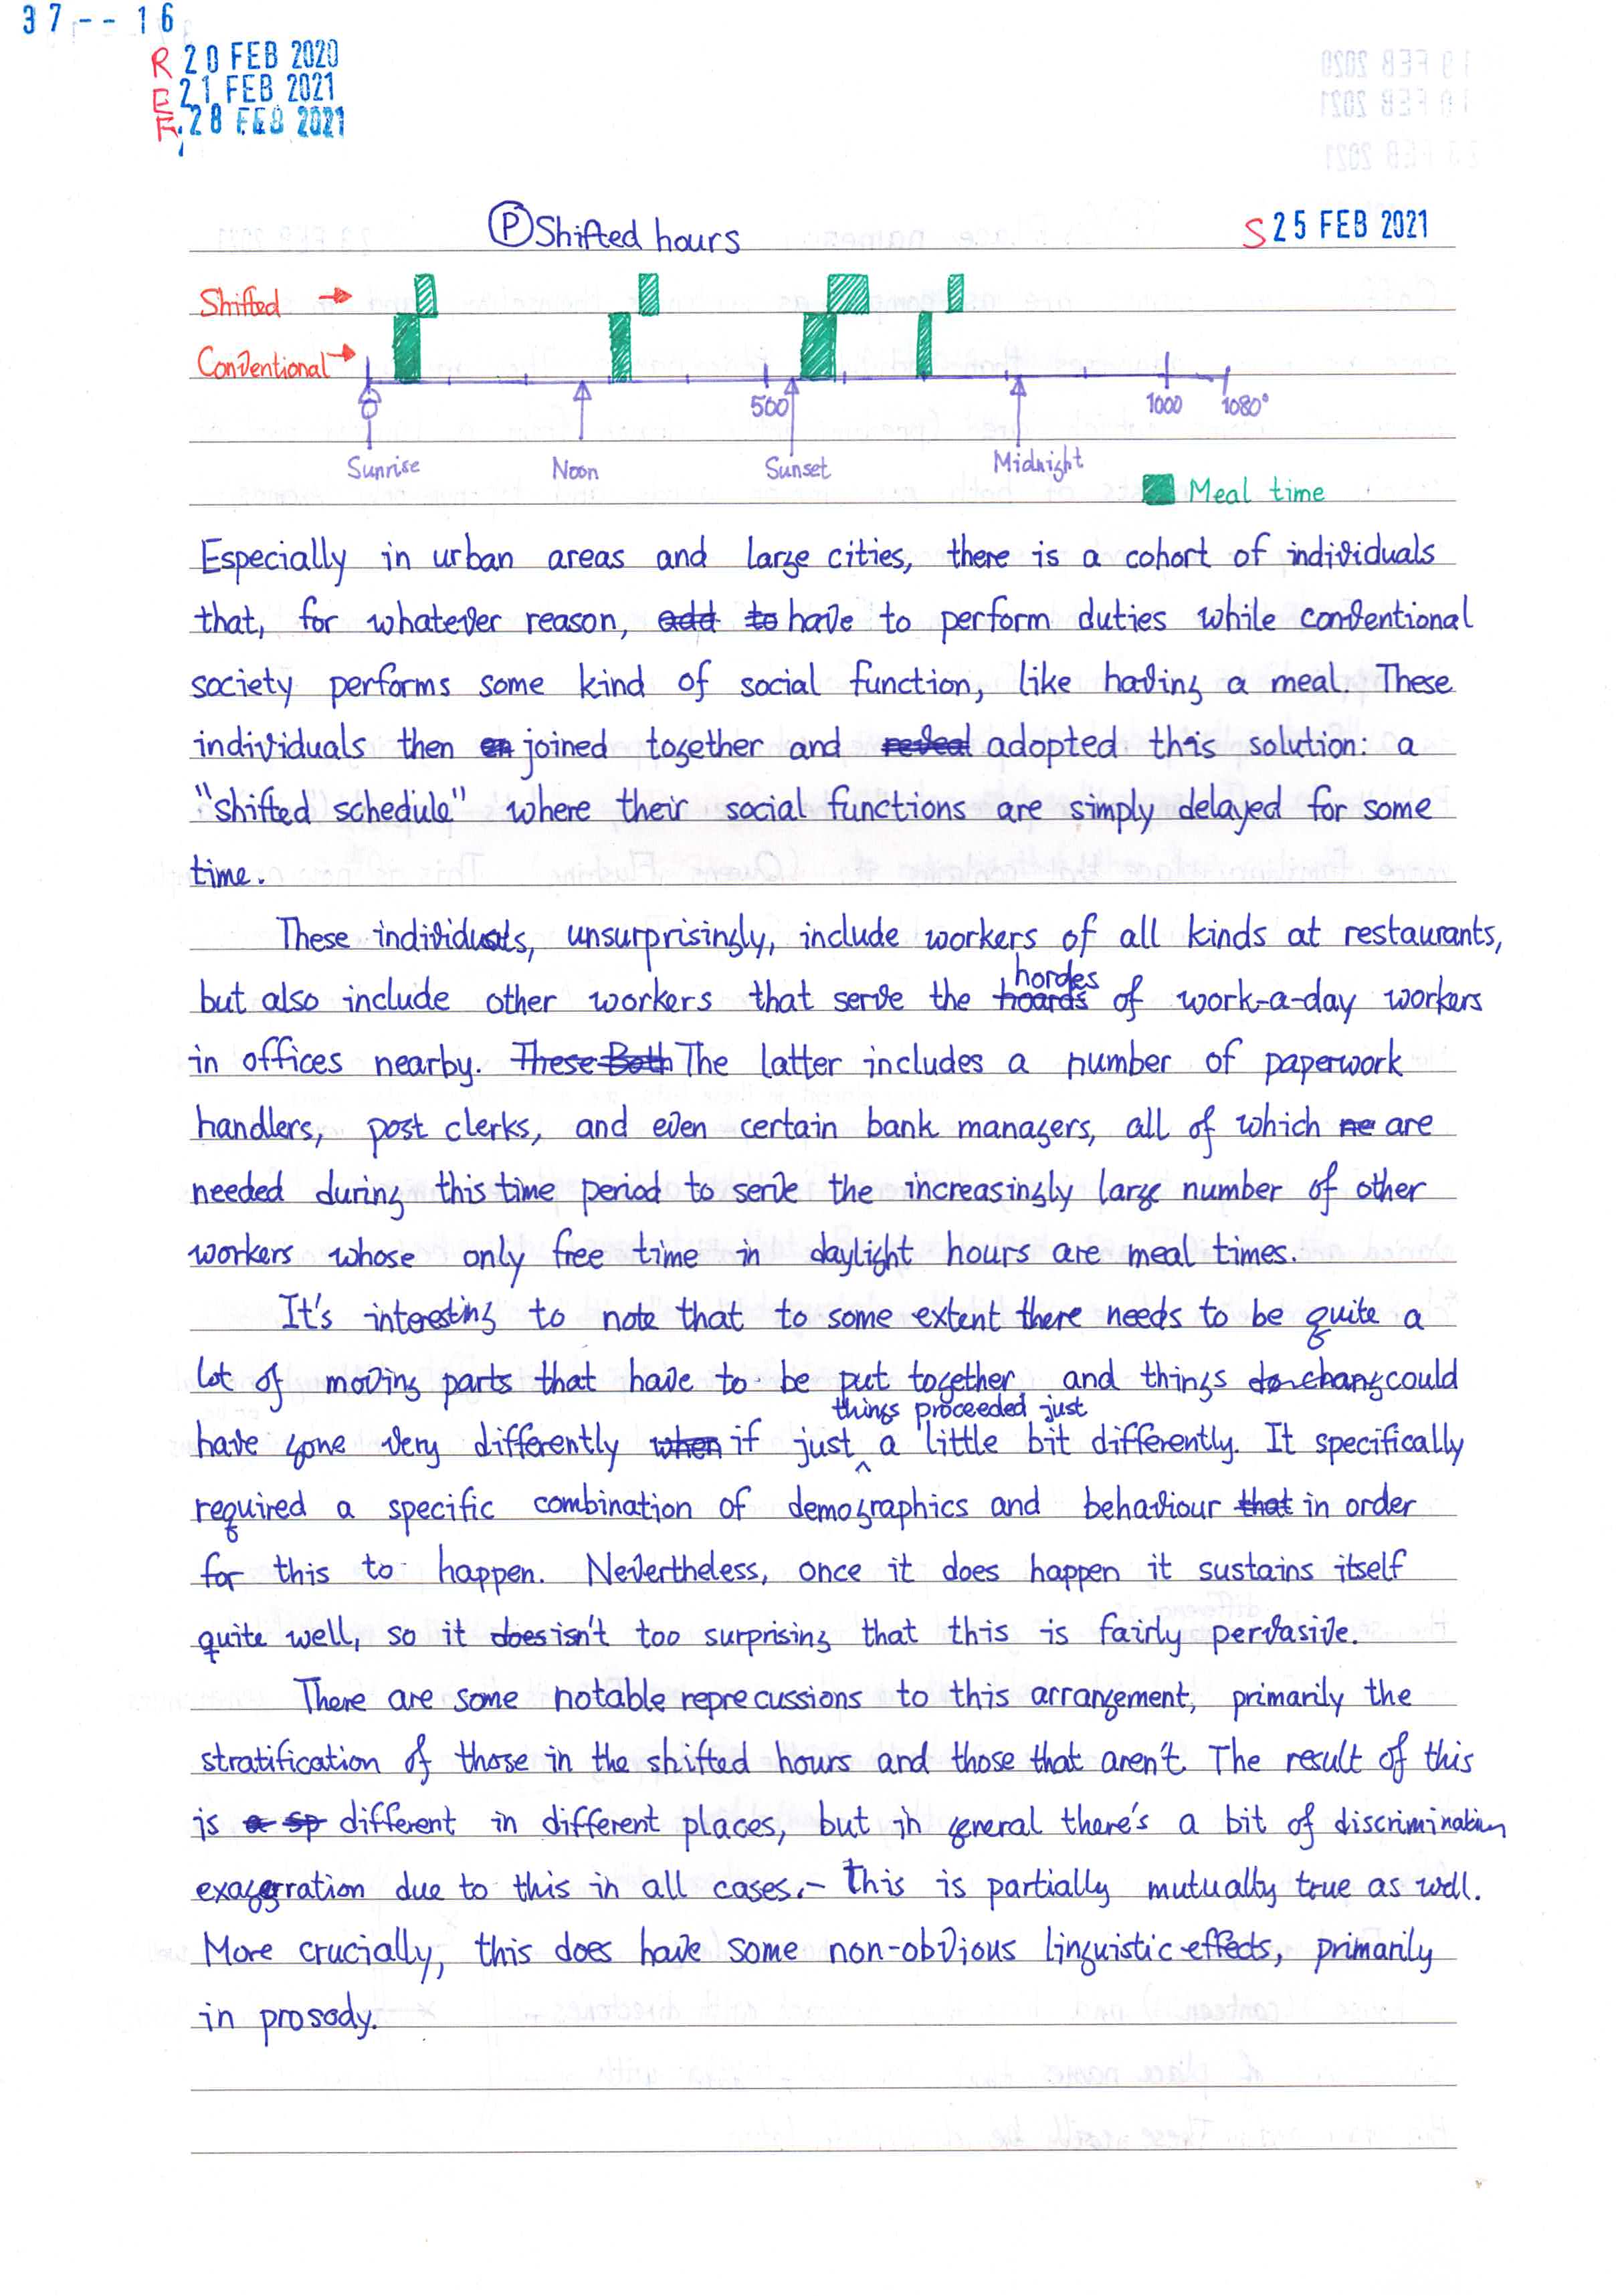 37--16
R 20 FEB 2020
E 21 FEB 2021
F 28 FEB 2021
Ⓟ Shifted hours
S 25 FEB 2021
Shifted →
Conventional →
0 500 1000 1080°
Sunrise Noon Sunset Midnight
Meal time
Especially in urban areas and large cities, there is a cohort of individuals
that, for whatever reason, add to have to perform duties while conventional
society performs some kind of social function, like having a meal. These
individuals then en joined together and reveal adopted this solution: a
"shifted schedule" where their social functions are simply delayed for some
time.
These individuals, unsurprisingly, include workers of all kinds at restaurants,
hordes
but also include other workers that serve the hoards of work-a-day workers
in offices nearby. These Both The latter includes a number of paperwork
handlers, post clerks, and even certain bank managers, all of which ne are
needed during this time period to serve the increasingly large number of other
workers whose only free time in daylight hours are meal times.
It's interesting to note that to some extent there needs to be quite a
lot of moving parts that have to be put together, and things do chang could
things proceeded just
have gone very differently when if just ^ a little bit differently. It specifically
required a specific combination of demographics and behaviour that in order
for this to happen. Nevertheless, once it does happen it sustains itself
quite well, so it does isn't too surprising that this is fairly pervasive.
There are some notable reprecussions to this arrangement, primarily the
stratification of those in the shifted hours and those that aren't. The result of this
is a sp different in different places, but in general there's a bit of discrimination
exaggerration due to this in all cases. – this is partially mutually true as well.
More crucially, this does have some non-obvious linguistic effects, primarily
in prosody.